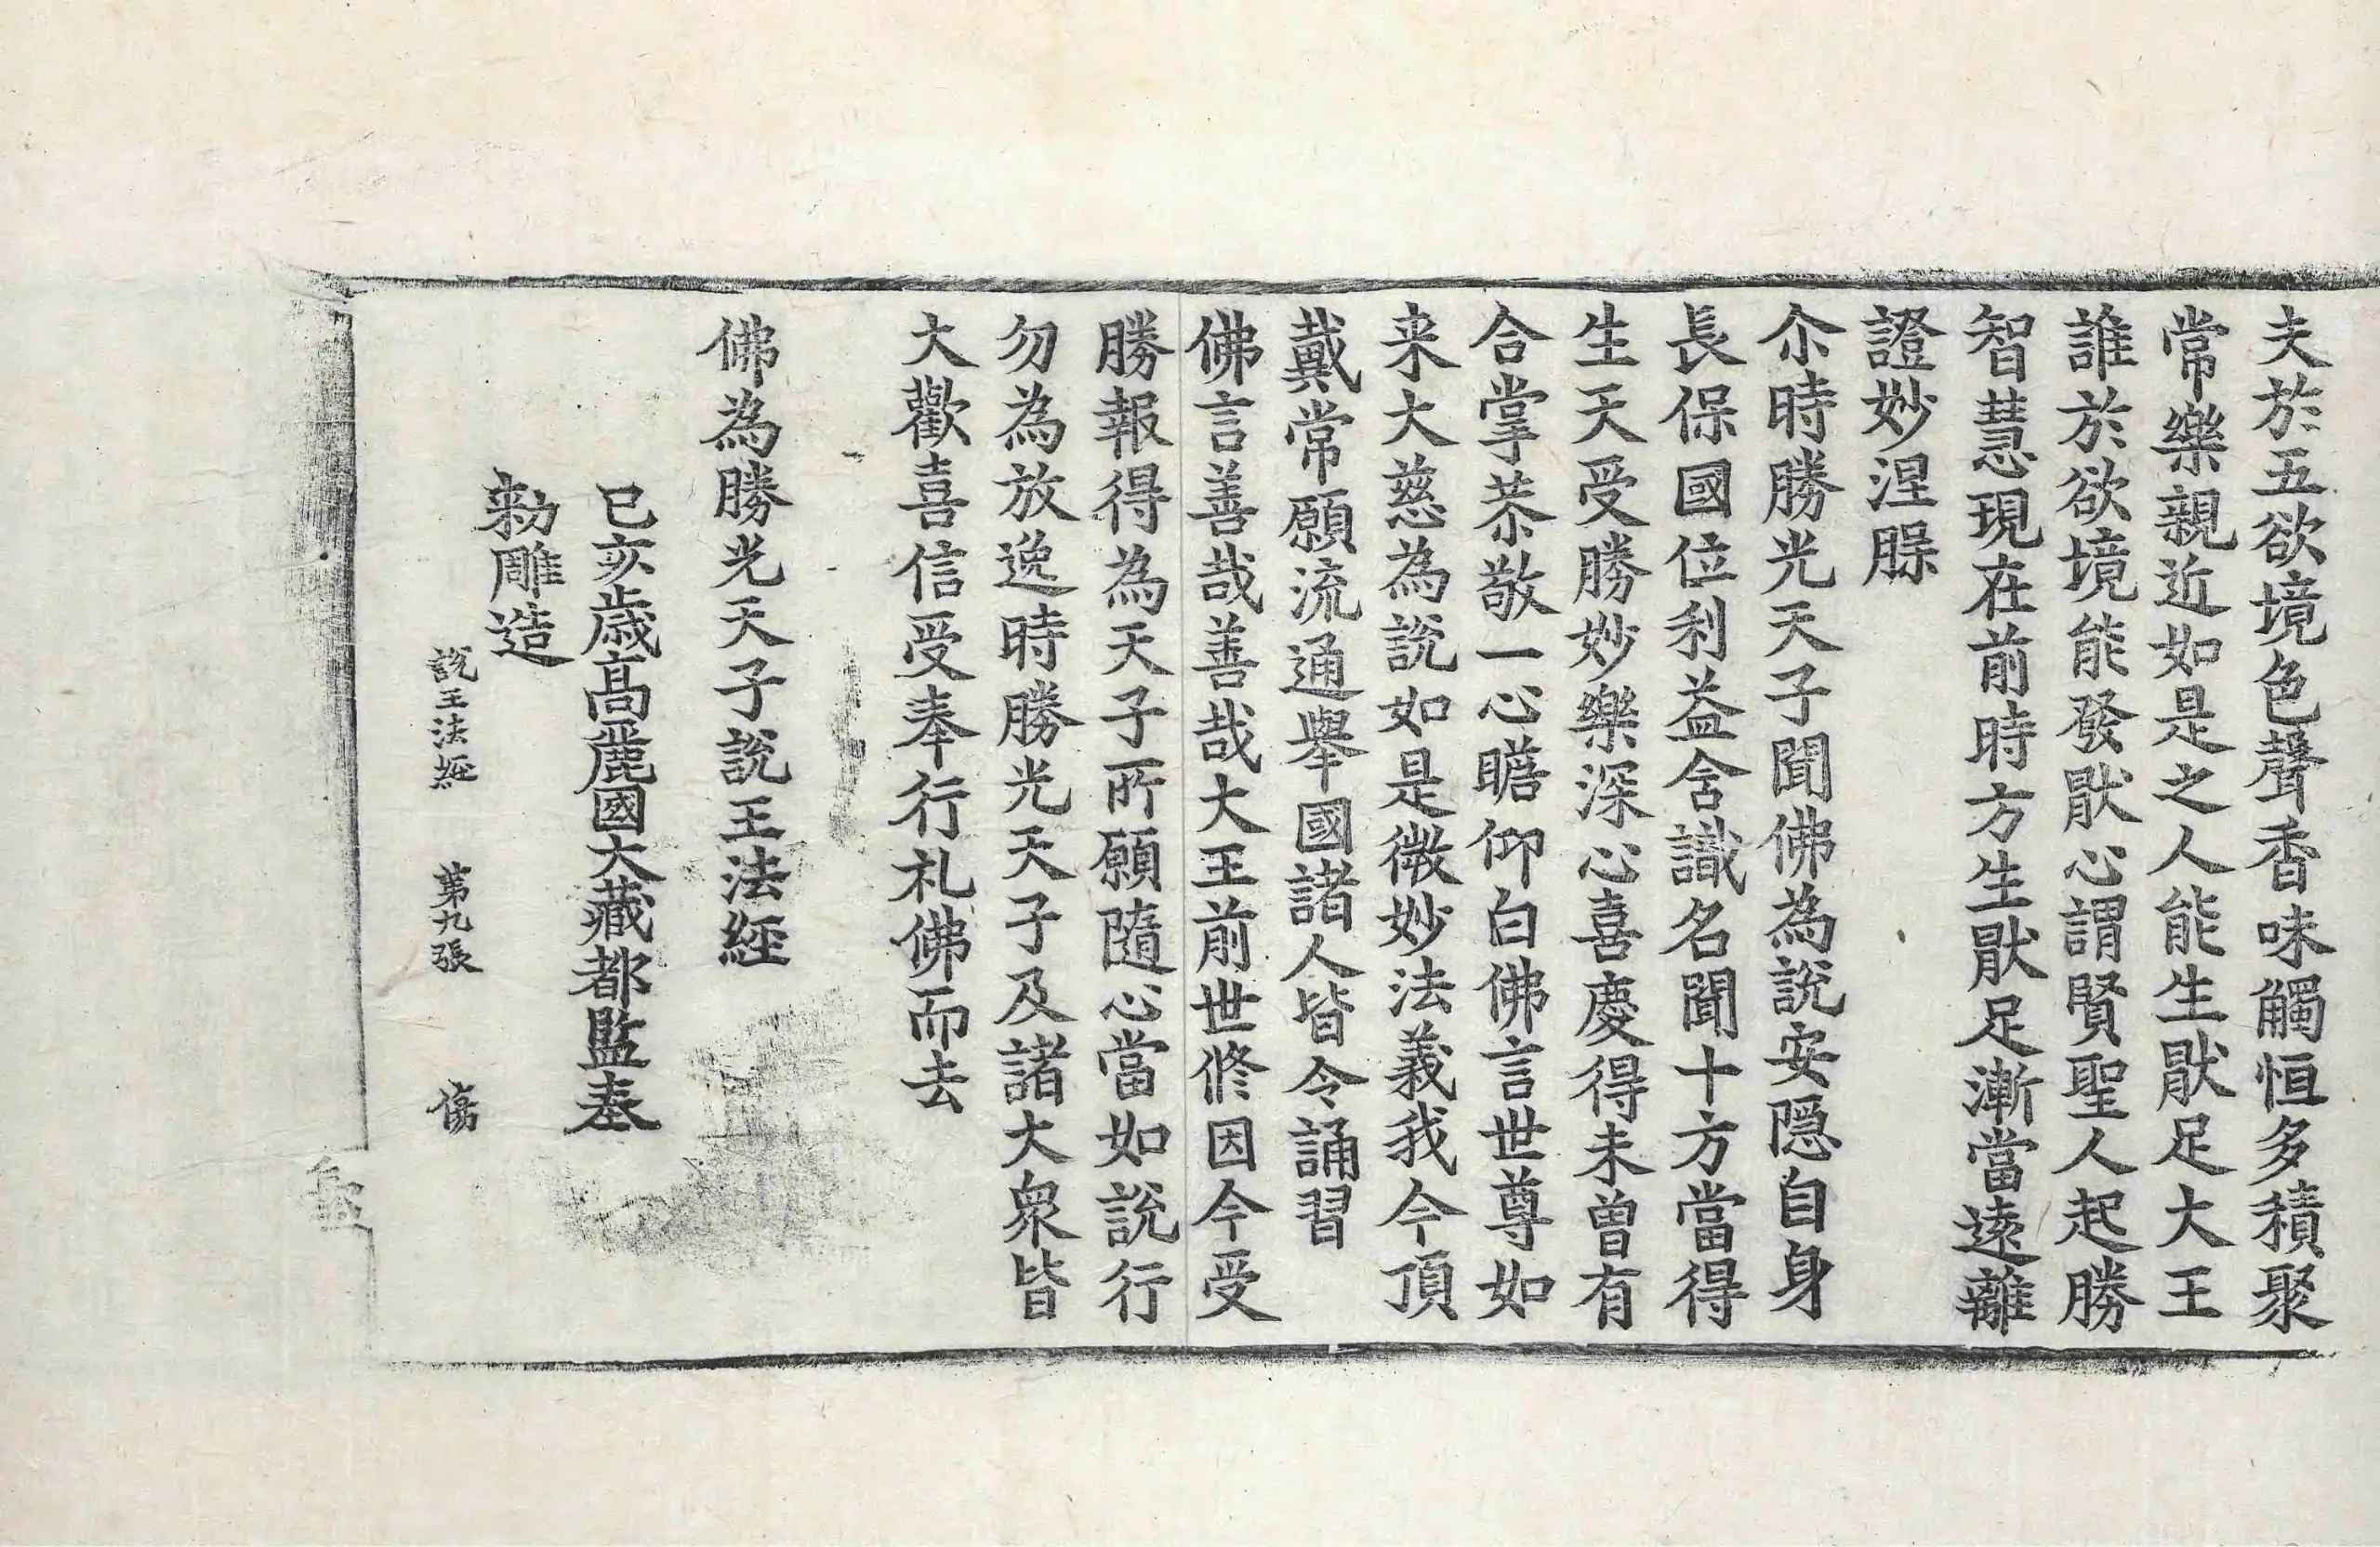 夫於五欲境色聲香味觸恒多積聚
常樂親近如是之人能生猒足大王
誰於欲境能發猒心謂賢聖人起勝
智慧現在前時方生猒足漸當遠離
證妙涅槃
尒時勝光天子聞佛為說安隱自身
長保國位利益含識名聞十方當得
生天受勝妙樂深心喜慶得未曽有
合掌恭敬一心瞻仰白佛言世尊如
来大慈為說如是微妙法義我今頂
戴常願流通舉國諸人皆令誦習
佛言善哉善哉大王前世修因今受
勝報得為天子所願隨心當如說行
勿為放逸時勝光天子及諸大衆皆
大歡喜信受奉行礼佛而去
佛為勝光天子說王法經
己亥歳高麗國大藏都監奉
勑雕造
說王法經 第九張 傷